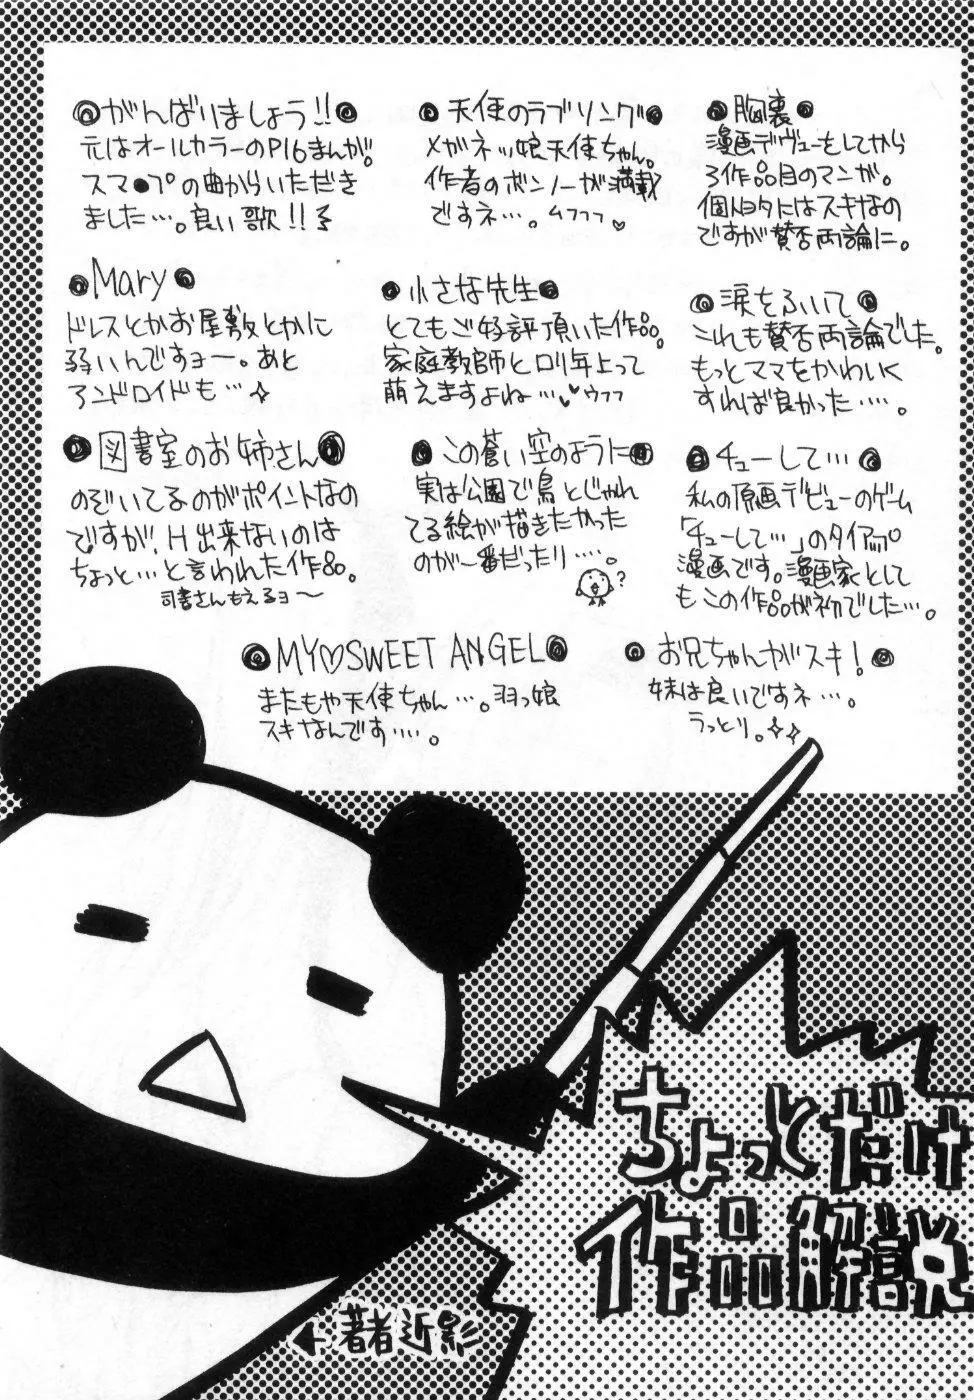 胸裏
漫画デヴューをしてから
3作品目のマンガ。
個人的にはスキなの
ですが賛否両論に。
天使のラブソング
メガネッ娘天使ちゃん。
作者のボンノーが満載
ですネ…。ムフフフ♡
がんばりましょう!!
元はオールカラーのP16まんが。
スマ●プの曲からいただき
ました…。良い歌!!
涙をふいて
これも賛否両論でした。
もっとママをかわいく
すれば良かった……。
小さな先生
とてもご好評頂いた作品。
家庭教師とロリ年上って
萌えますよね…♡ウフフ
Mary
ドレスとかお屋敷とかに
弱いんですョー。あと
アンドロイドも…☆
チューして…
私の原画デビューのゲーム
「チューして…」のタイアップ
漫画です。漫画家として
もこの作品が初でした…。
この蒼い空のように
実は公園で鳥とじゃれ
てる絵が描きたかった
のが一番だったり……。
?
図書室のお姉さん
のぞいてるのがポイントなの
ですが、H出来ないのは
ちょっと…と言われた作品。
司書さんもえるョ〜
お兄ちゃんがスキ!
妹は良いですネ…。
うっとり。☆☆
MY♡SWEET ANGEL
またもや天使ちゃん…。羽っ娘
スキなんです……。
ちょっとだけ
作品解説
←著者近影